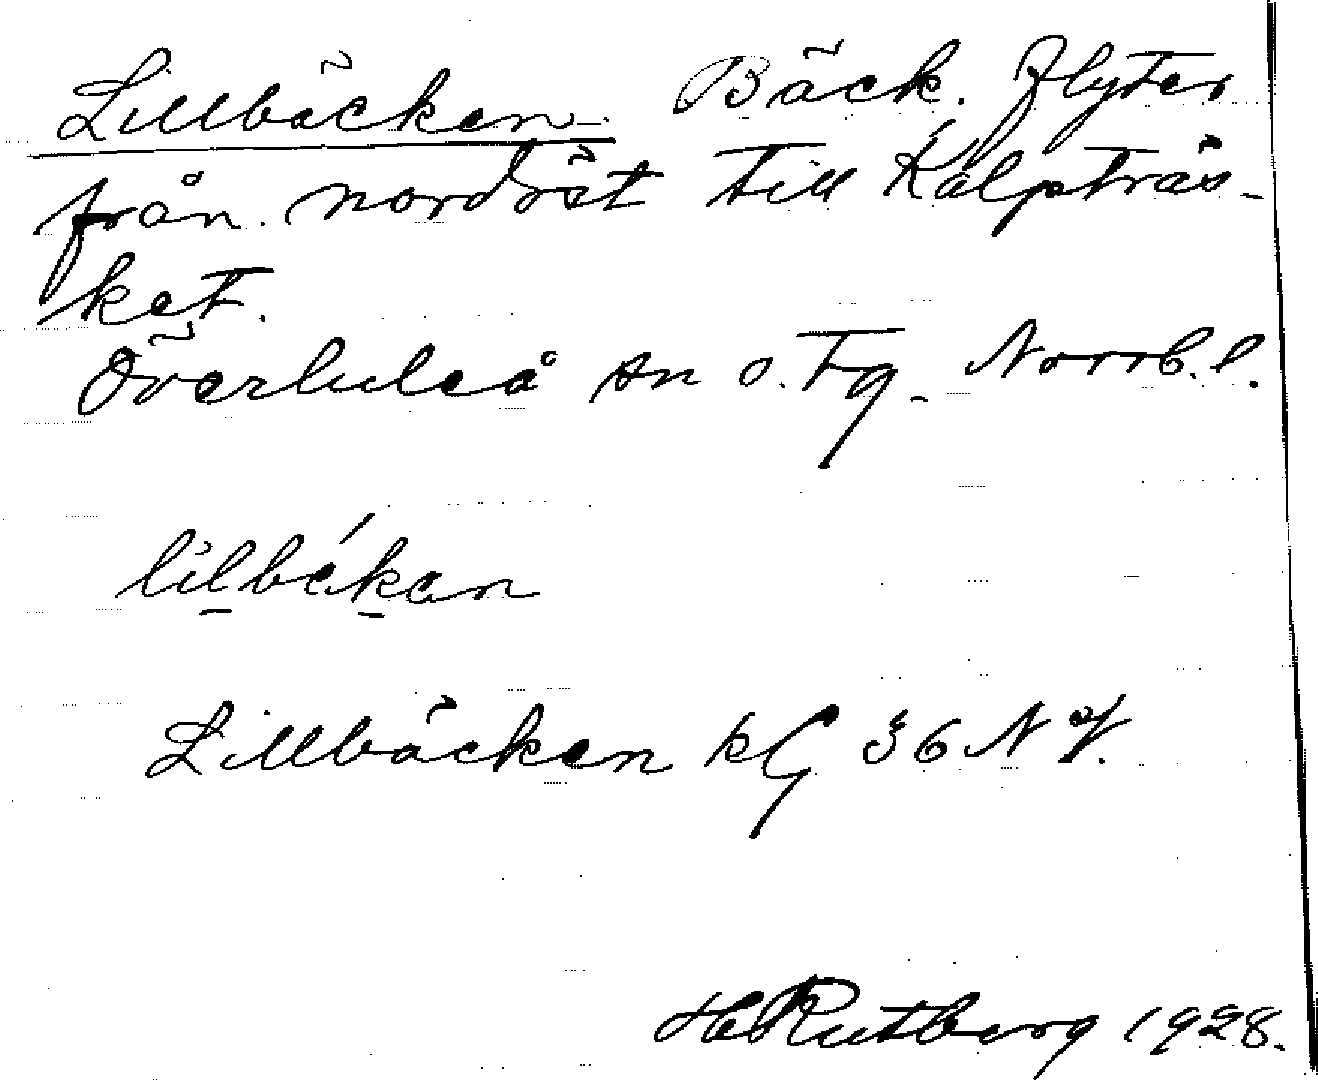 Lillbäcken. Bäck. Flyter
från nordöst till Kalpträs-
ket.
Överluleå sn o. tg. Norrb. l.
lilbékan
Lillbäcken kG 36 NV.
H Rutberg 1928.